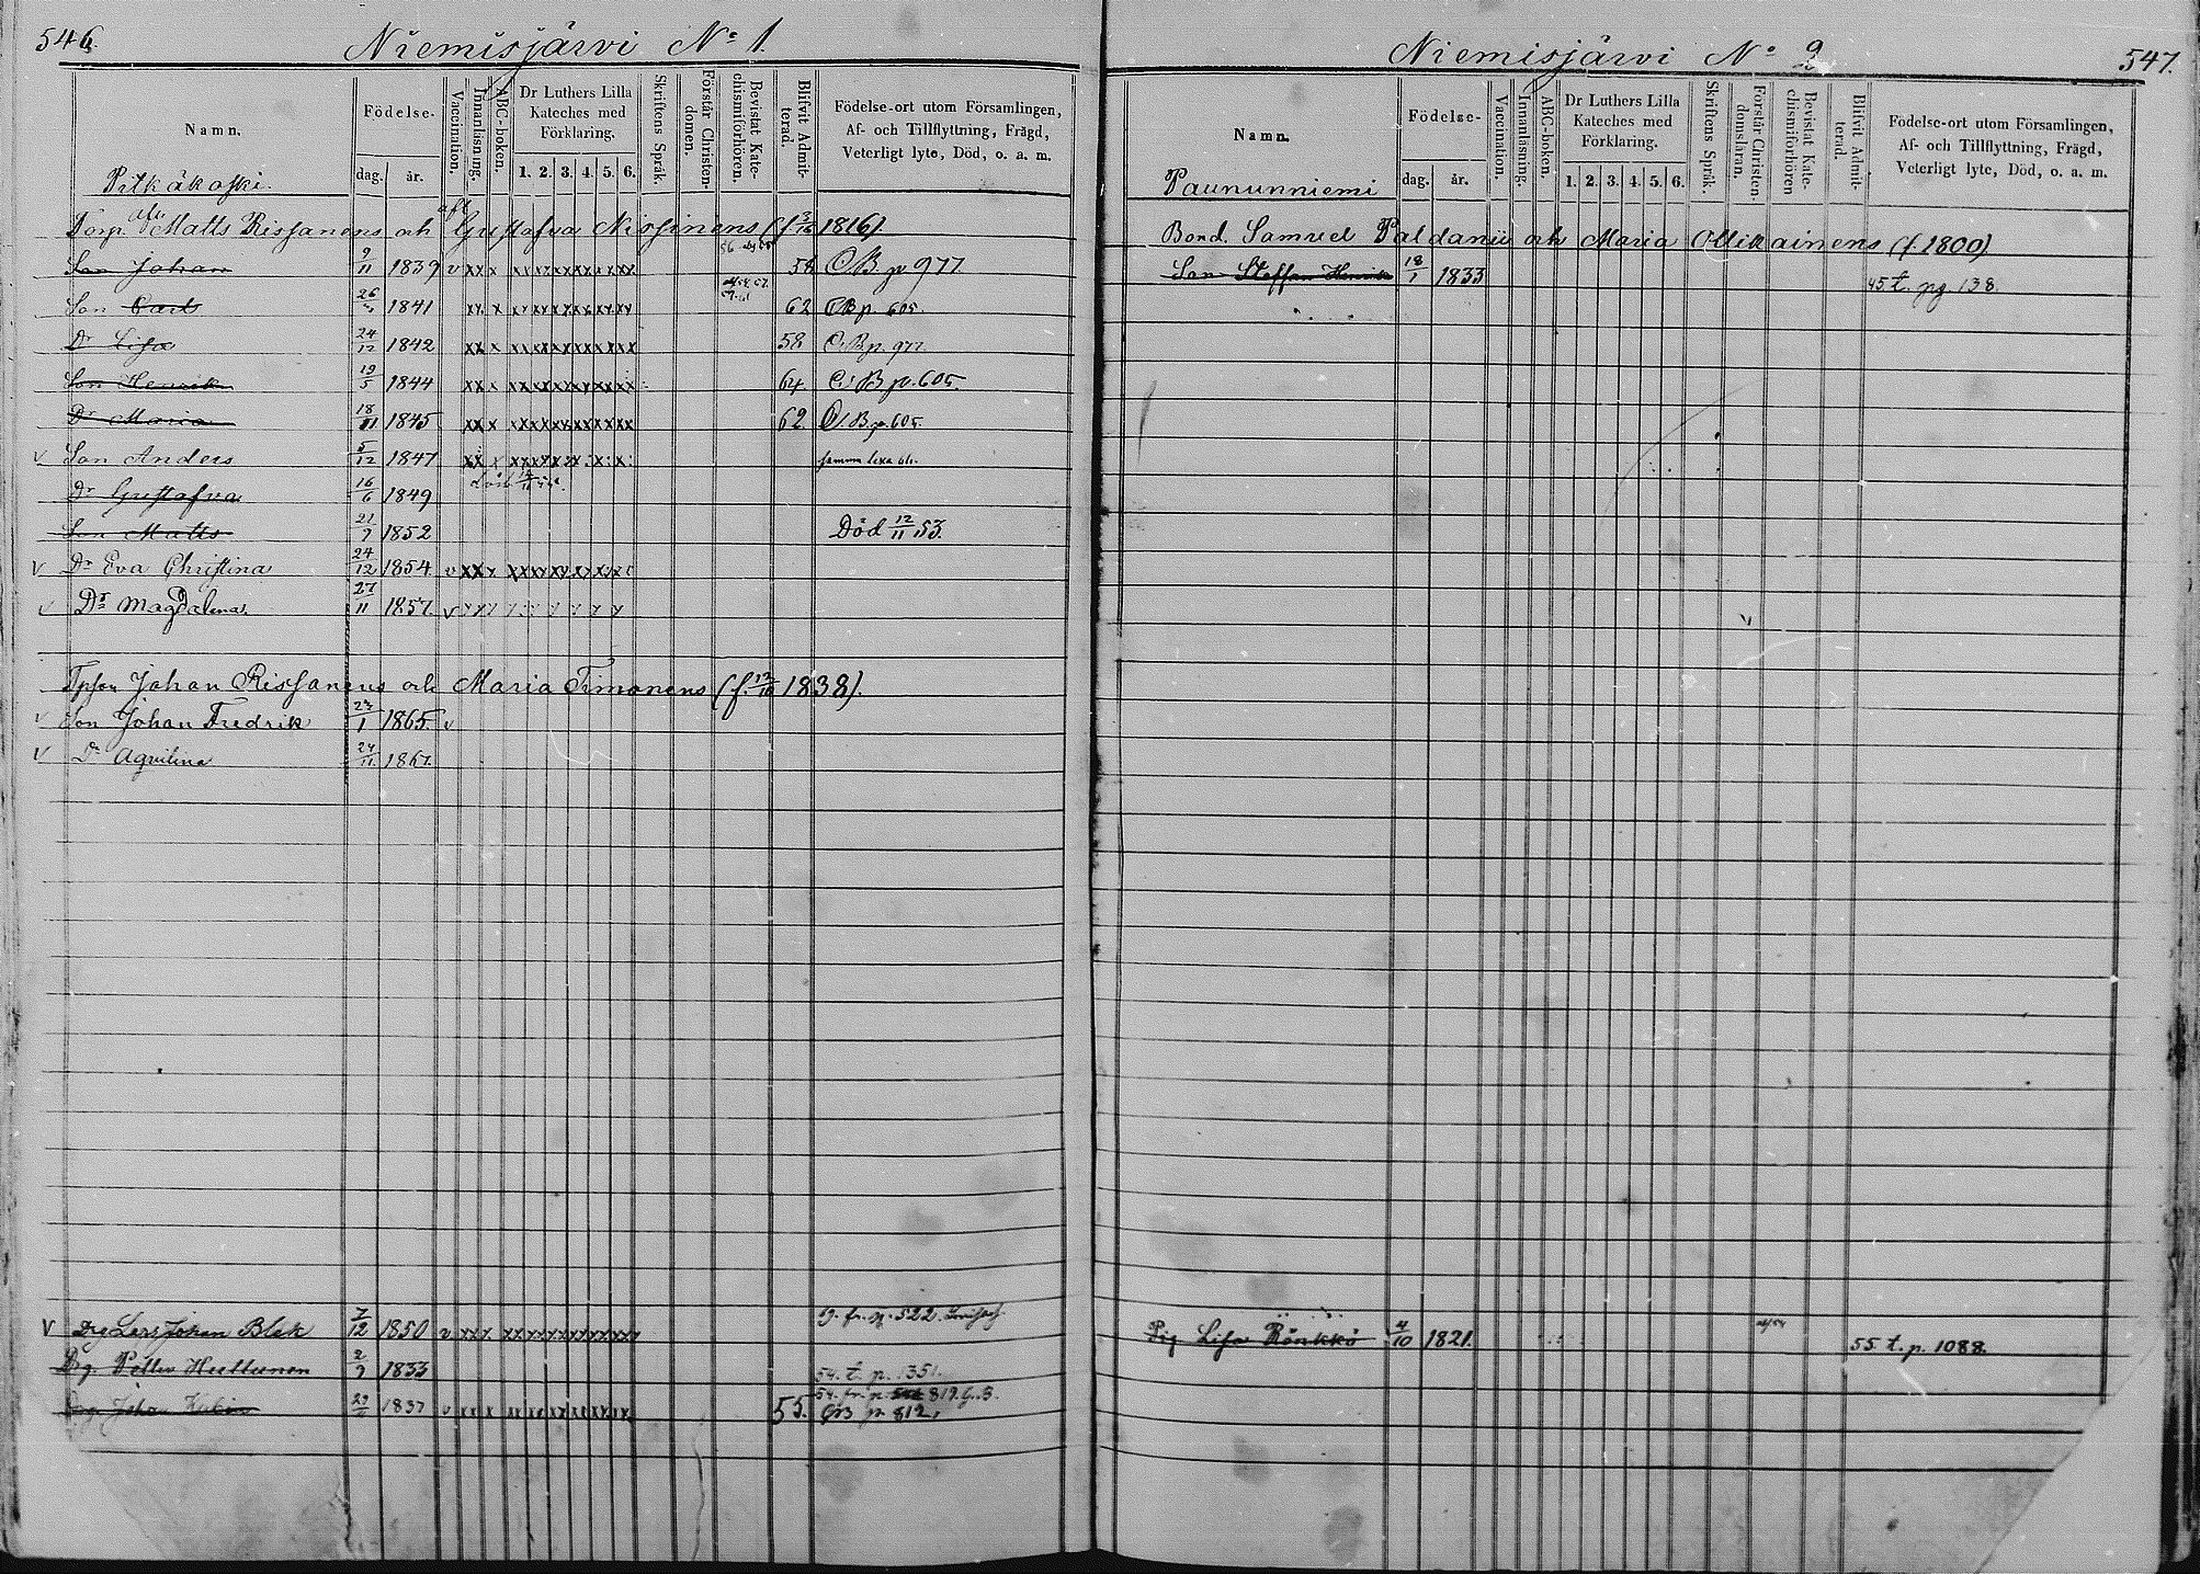 546.
Niemisjärvi No 1.
Namn.
Födelse.
dag.
år.
Vaccination.
Innanläsning.
ABC-boken.
Dr Luthers Lilla
Kateches med
Förklaring.
1. 2. 3. 4. 5. 6.
Skriftens Språk.
Förstår Christen-
domen.
Bevistat Kate-
chismiförhören.
Blifvit Admit-
terad.
Födelse-ort utom Församlingen,
Af- och Tillflyttning, Frägd,
Veterligt lyte, Död, o. a. m.
Pitkäkoski.
Torp. Matts Rissanens och Gustafva Nissinens (f 3/10 1816).
Son Johan 9/11 1839 v xx x xxxxxxxxxxxx 58 C.B. p. 977
Son Carl 26/ 1841 xx x xxxxxxxxxxxx 62 C.B. p. 605.
Dr Lisa 24/12 1842 xx x xxxxxxxxxxxx 58 C.B. p. 977
Son Henrik 19/5 1844 xx x xxxxxxxxxxxx 64 C.B. p. 605.
Dr Maria 18/11 1845 xx x xxxxxxxxxxxx 62. C.B. p. 605.
v Son Anders 5/12 1847 xx x samma lexa
Dr Gustafva 16/6 1849
Son Matts 21/9 1852 Död 12/11 53.
v Dr Eva Christina 24/12 1854 v xx x
v Dr Magdalena. 27/11 1857. v
Tpson Johan Rissanens och Maria Timonens (f. 12/10 1838).
v Son Johan Fredrik 23/1 1865. v
v Dr Aqvilina 24/11 1867.
v Drg Lars Johan Blek 7/12 1850 v fr. p. 522.
Drg. Petter Huttunen 2/9 1833 54. t. p. 351.
54. fr. p. 819. C.B.
Drg. Johan 1837 v xx x 55. C.B. p. 812.
547.
Niemisjärvi No 2
Namn.
Födelse-
dag.
år.
Vaccination.
Innanläsning.
ABC-boken.
Dr Luthers Lilla
Kateches med
Förklaring.
1. 2. 3. 4. 5. 6.
Skriftens Språk.
Förstår Christen-
domsläran.
Bevistat Kate-
chismiförhören
Blifvit Admit-
terad.
Födelse-ort utom Församlingen,
Af- och Tillflyttning, Frägd,
Veterligt lyte, Död, o. a. m.
Paununniemi
Bond. Samuel Paldanii och Maria Ollikainens (f. 1800)
Son Staffan Henrik 18/1 1833 45 t. pg. 138.
Pig Lisa Rönkkö 4/10 1821. 55. t. p. 1088.